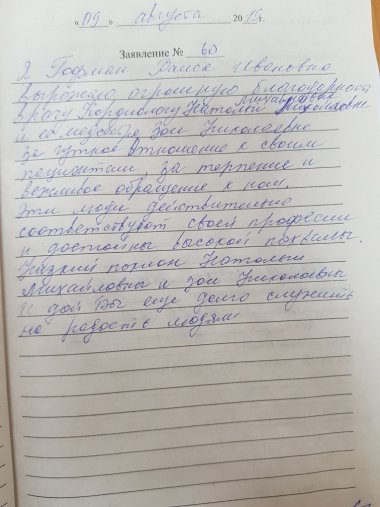 «09» августа 2019г.
Заявление № 60
Я Гофман Раиса Ивановна
выражаю огромную благодарность
врачу Кардиологу Наталии Михайловне
и её медсестре Зои Николаевне
за чуткое отношение к своим
пациентам, за терпение и
вежливое обращение к ним.
Эти люди действительно
соответствуют своей професии
и достойны высокой похвалы.
Низкий поклон Наталии
Михайловны и Зои Николаевны
И дай Бы еще долго служить
на радость людям